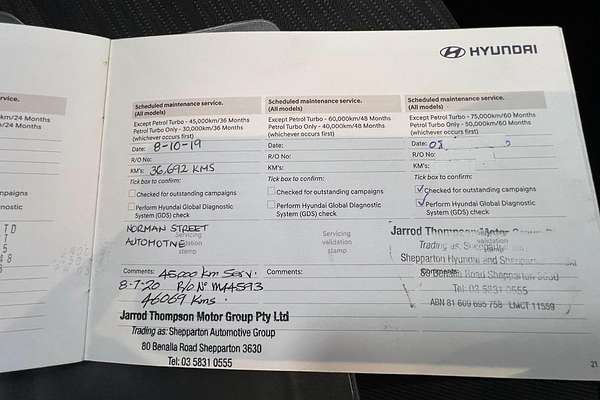 HYUNDAI
vice.
km/24 Months
Months
campaigns
Diagnostic
Scheduled maintenance service.
(All models)
Except Petrol Turbo - 45,000km/36 Months
Petrol Turbo Only - 30,000km/36 Months
(whichever occurs first)
Date: 8-10-19
R/O No:
KM's: 36,692 KMS
Tick box to confirm:
Checked for outstanding campaigns
Perform Hyundai Global Diagnostic
System (GDS) check
NORMAN STREET
AUTOMOTIVE
Servicing
validation
stamp
Comments: 45,000 Km Serv.
8-7-20 R/O No M44593
46069 Kms.
Jarrod Thompson Motor Group Pty Ltd
Trading as: Shepparton Automotive Group
80 Benalla Road Shepparton 3630
Tel: 03 5831 0555
Scheduled maintenance service.
(All models)
Except Petrol Turbo - 60,000km/48 Months
Petrol Turbo Only - 40,000km/48 Months
(whichever occurs first)
Date:
R/O No:
KM's:
Tick box to confirm:
Checked for outstanding campaigns
Perform Hyundai Global Diagnostic
System (GDS) check
Servicing
validation
stamp
Comments:
Scheduled maintenance service.
(All models)
Except Petrol Turbo - 75,000km/60 Months
Petrol Turbo Only - 50,000km/60 Months
(whichever occurs first)
Date:
R/O No:
KM's:
Tick box to confirm:
Checked for outstanding campaigns
Perform Hyundai Global Diagnostic
System (GDS) check
Jarrod Thompson Motor Group
validation
stamp
Trading as:
Shepparton Hyundai and
Comments:
80 Benalla Road Shepparton 3630
Tel: 03 5831 0555
ABN 81 609 695 758 LMCT 11559
21